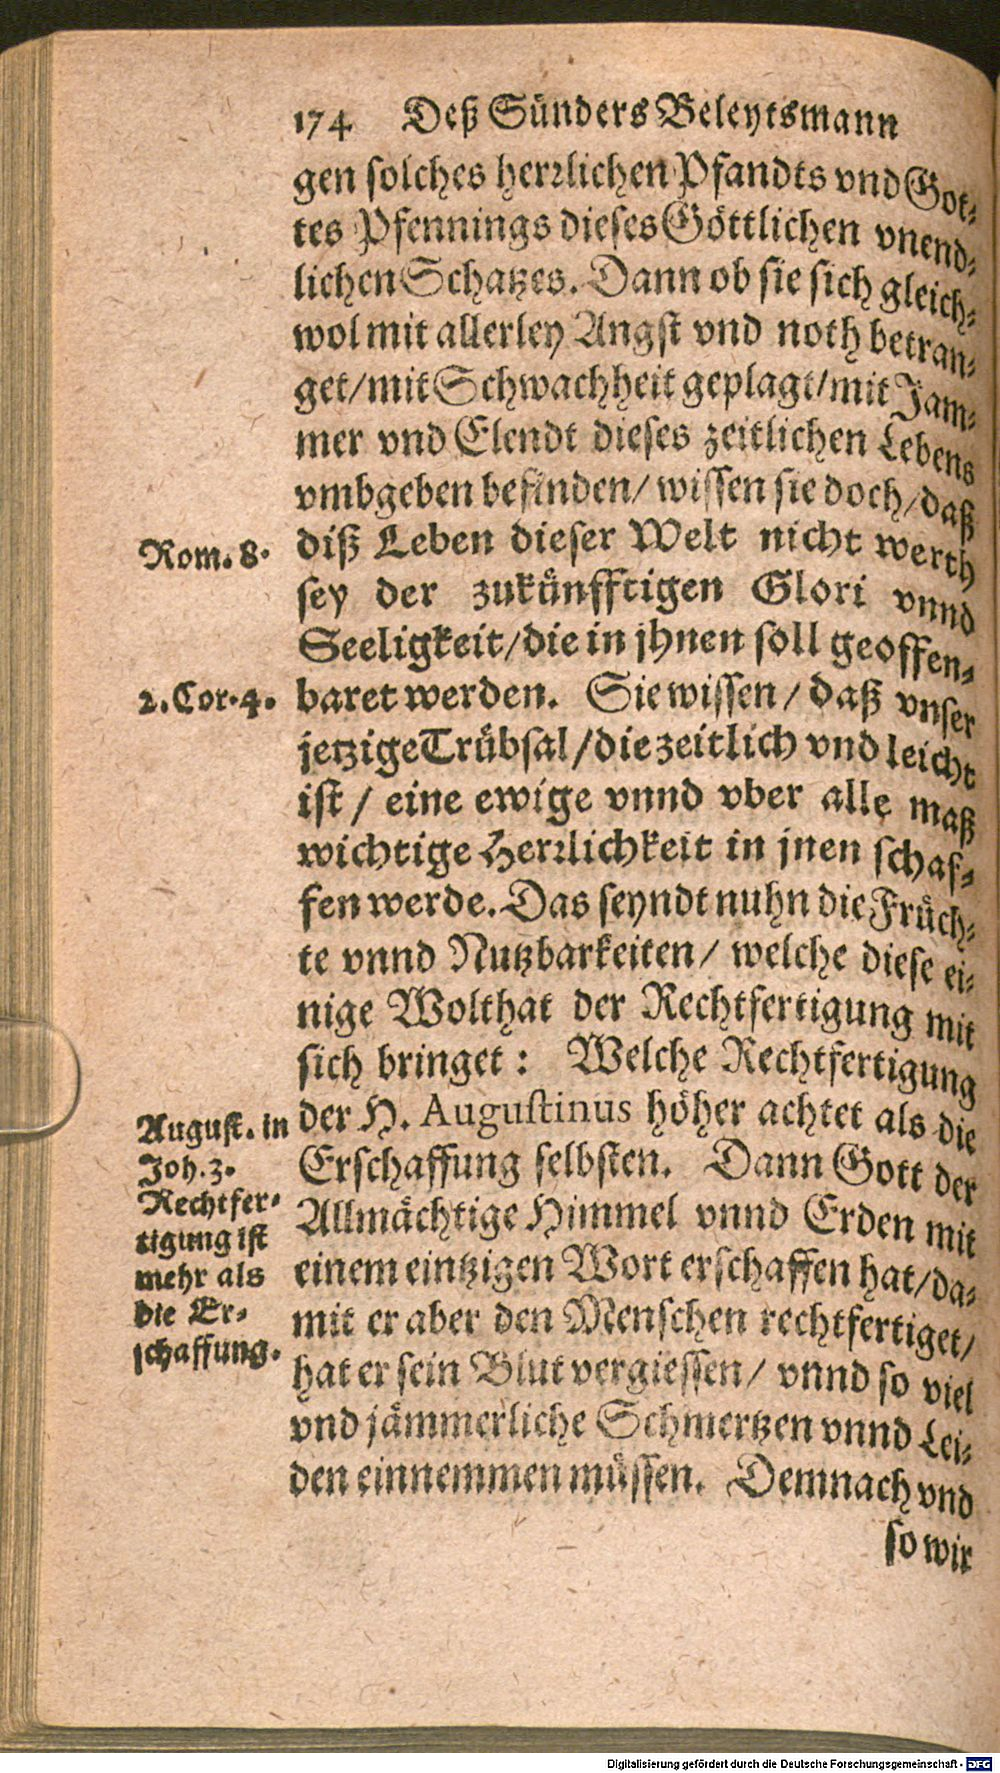 174 Deß Sünders Beleytsmann
gen solches herrlichen Pfandts vnd Got-
tes Pfennings dieses Göttlichen vnend-
lichen Schatzes. Dann ob sie sich gleich-
wol mit allerley Angst vnd noth betran-
get/mit Schwachheit geplagt/mit Jam-
mer vnd Elendt dieses zeitlichen Lebens
vmbgeben befinden/ wissen sie doch/daß
Rom. 8. diß Leben dieser Welt nicht werth
sey der zukünfftigen Glori vnnd
Seeligkeit/die in jhnen soll geoffen-
2. Cor. 4. baret werden. Sie wissen/ daß vnser
jetzige Trübsal/die zeitlich vnd leicht
ist/ eine ewige vnnd vber alle maß
wichtige Herrlichkeit in jnen schaf-
fen werde. Das seyndt nuhn die Früch-
te vnnd Nutzbarkeiten/ welche diese ei-
nige Wolthat der Rechtfertigung mit
sich bringet: Welche Rechtfertigung
der H. Augustinus höher achtet als die
Erschaffung selbsten. Dann Gott der
Allmächtige Himmel vnnd Erden mit
einem eintzigen Wort erschaffen hat/da-
mit er aber den Menschen rechtfertiget/
hat er sein Blut vergiessen/ vnnd so viel
vnd jämmerliche Schmertzen vnnd Lei-
den einnemmen müssen. Demnach vnd
so wir
August. in
Joh. 3.
Rechtfer-
tigung ist
mehr als
die Er-
schaffung.
Digitalisierung gefördert durch die Deutsche Forschungsgemeinschaft - DFG